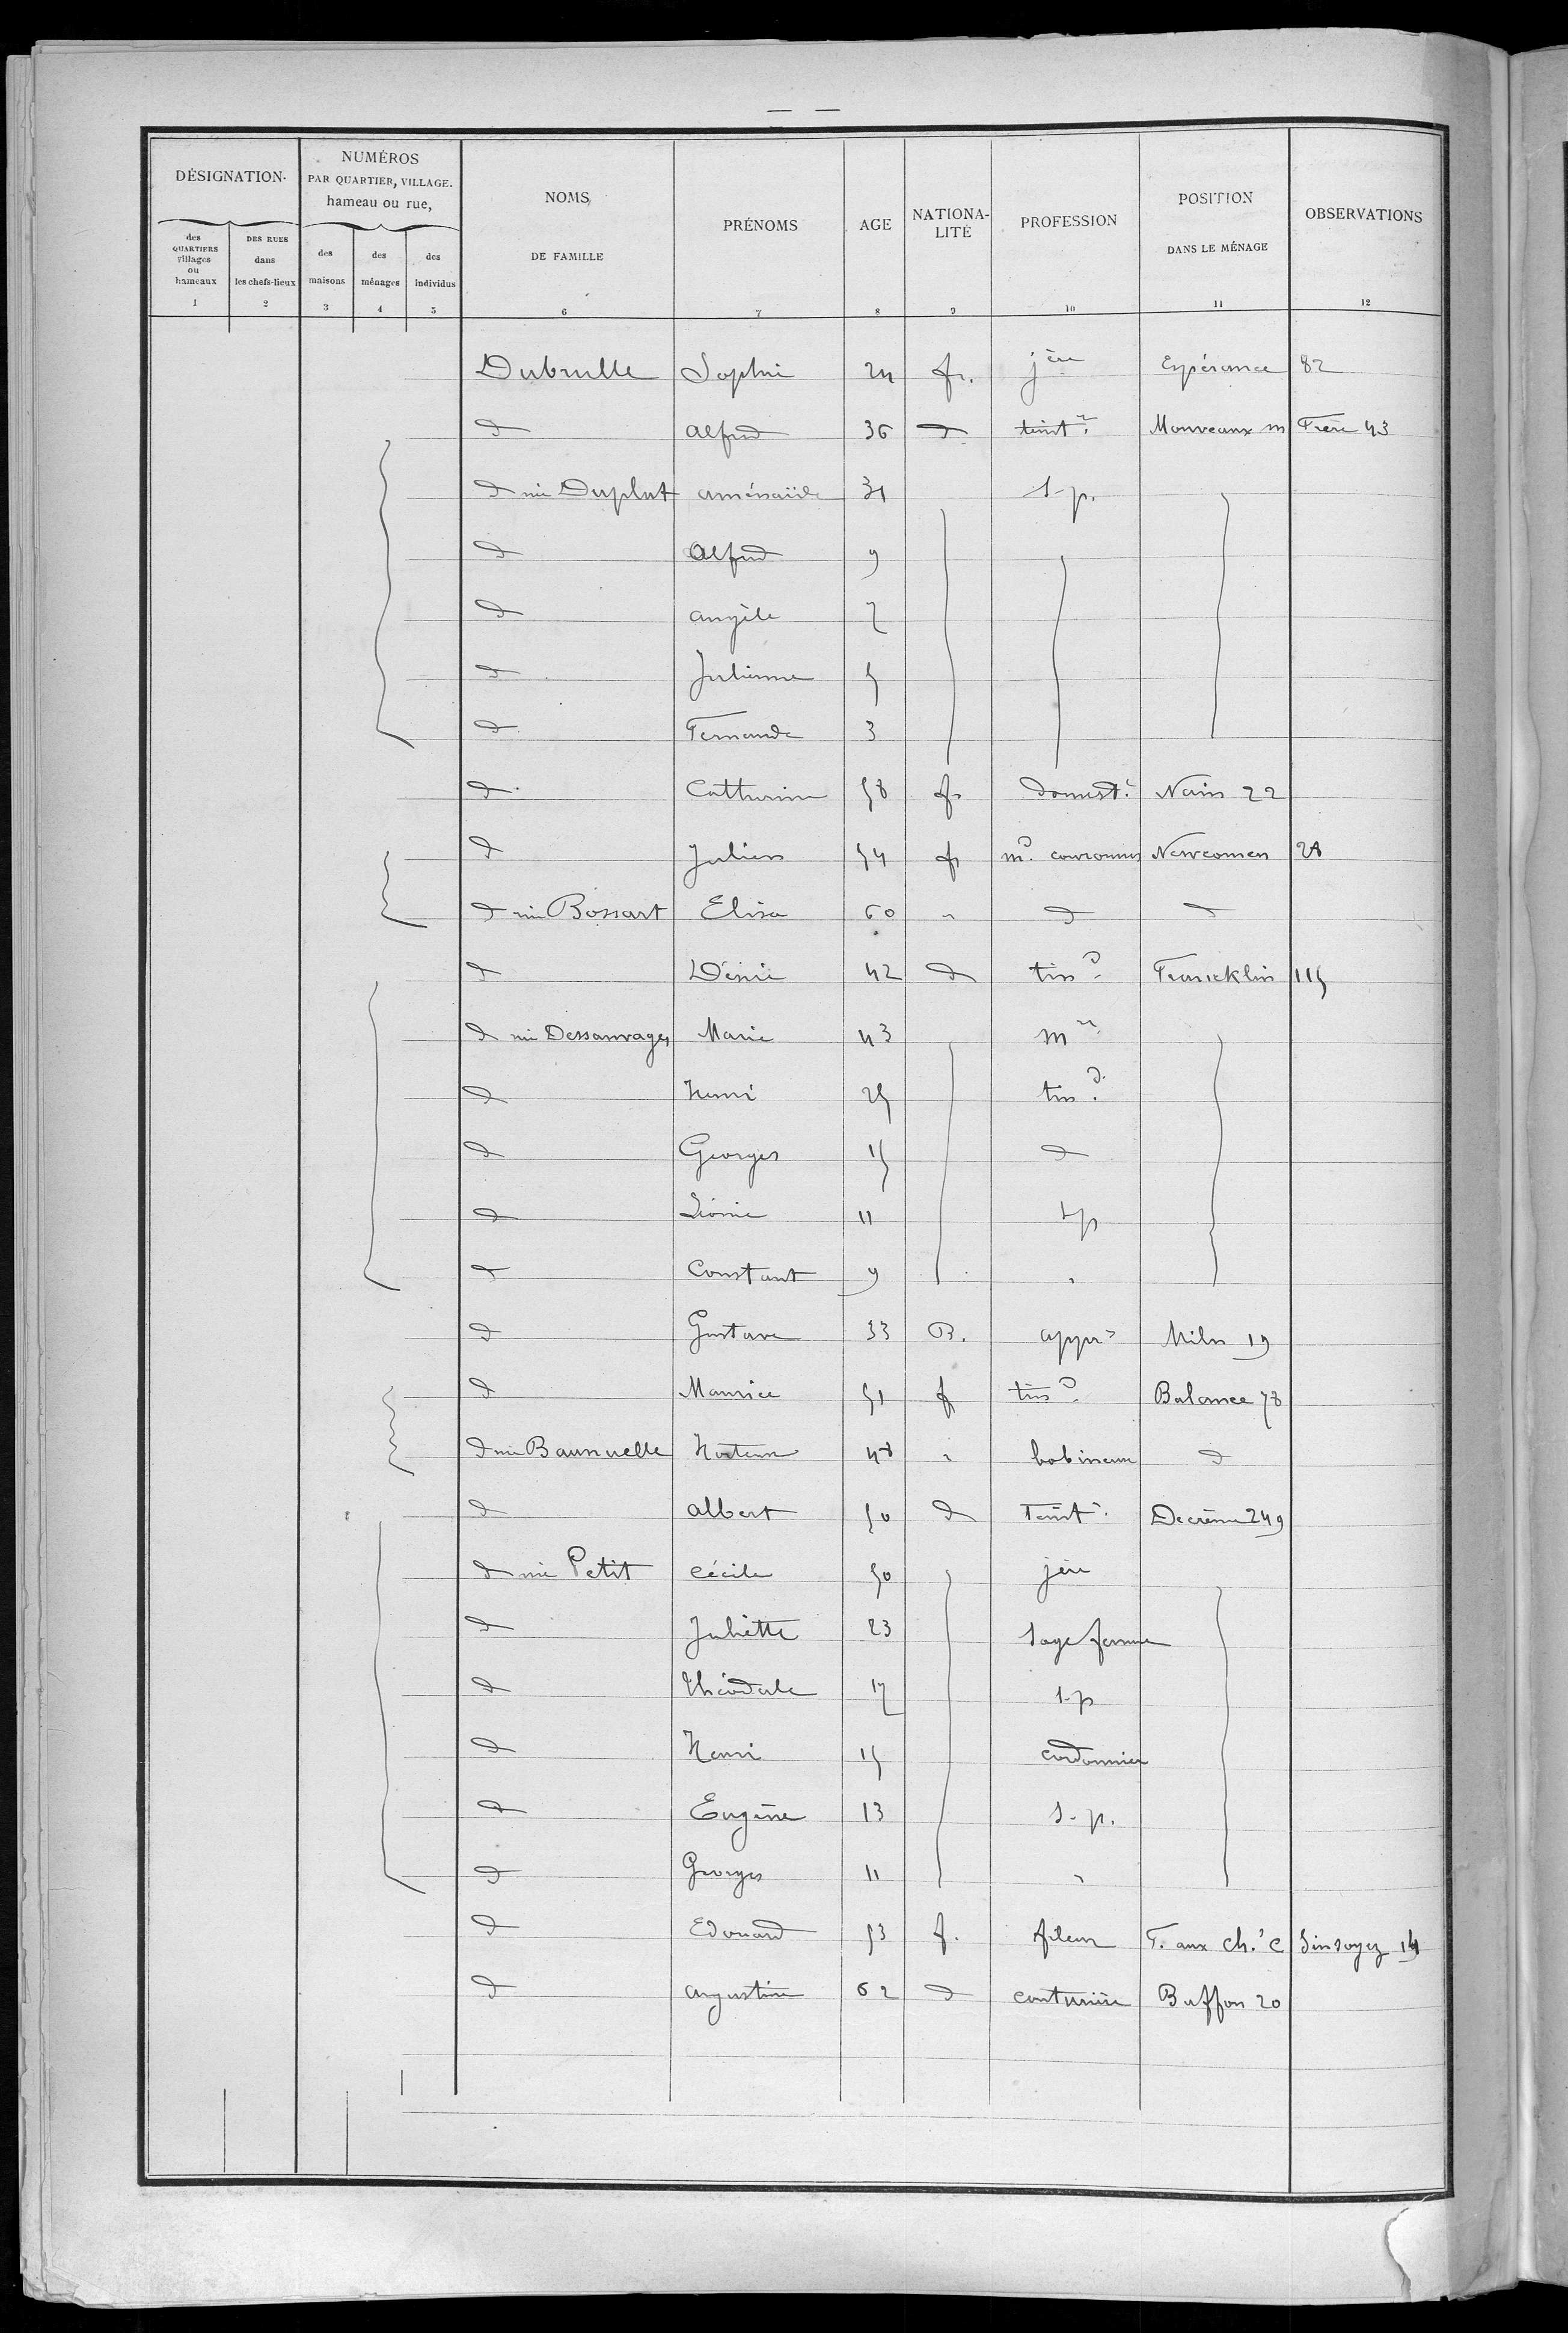 — —
DÉSIGNATION.
NUMÉROS PAR QUARTIER, VILLAGE. hameau ou rue,
NOMS DE FAMILLE
PRÉNOMS
AGE
NATIONA-LITÉ
PROFESSION
POSITION DANS LE MÉNAGE
OBSERVATIONS
des QUARTIERS villages ou hameaux
DES RUES dans les chefs-lieux
des maisons
des ménages
des individus
1 2 3 4 5 6 7 8 9 10 11 12
Dubrulle Sophie 24 fr. jère Espérance 82
d Alfred 36 d teintr. Mouveaux m Frère 43
d née Duplat 31 s-p.
d Alfred 9
d Angèle 7
d Julienne 5
d Fernande 3
d Catherine 58 fr domest. Nain 22
d Julien 54 fr md. couronnes Newcomen 28
d née Bossart Elisa 60 " d d
d Désiré 42 d tisd. Francklin 115
d née Dessauvages Marie 43 mre
d Henri 25 tisd.
d Georges 15 d
d Léonie 11 s-p
d Constant 9 "
d Gustave 33 B. appr Miln 19
d Maurice 51 f tisd. Balance 78
d née Hortense 48 " bobineuse d
d Albert 50 d Teint. Decrême 249
d née Petit Cécile 50 jère
d Juliette 23 Sage femme
d 17 s-p
d Henri 15 cordonnier
d Eugène 13 s-p.
d Georges 11 "
d Edouard 53 f. fileur F. aux ch. c 14
d Augustine 62 d couturière Buffon 20